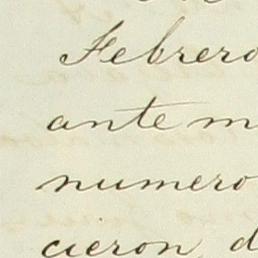 Febrero
ante m
numero
cieron, d